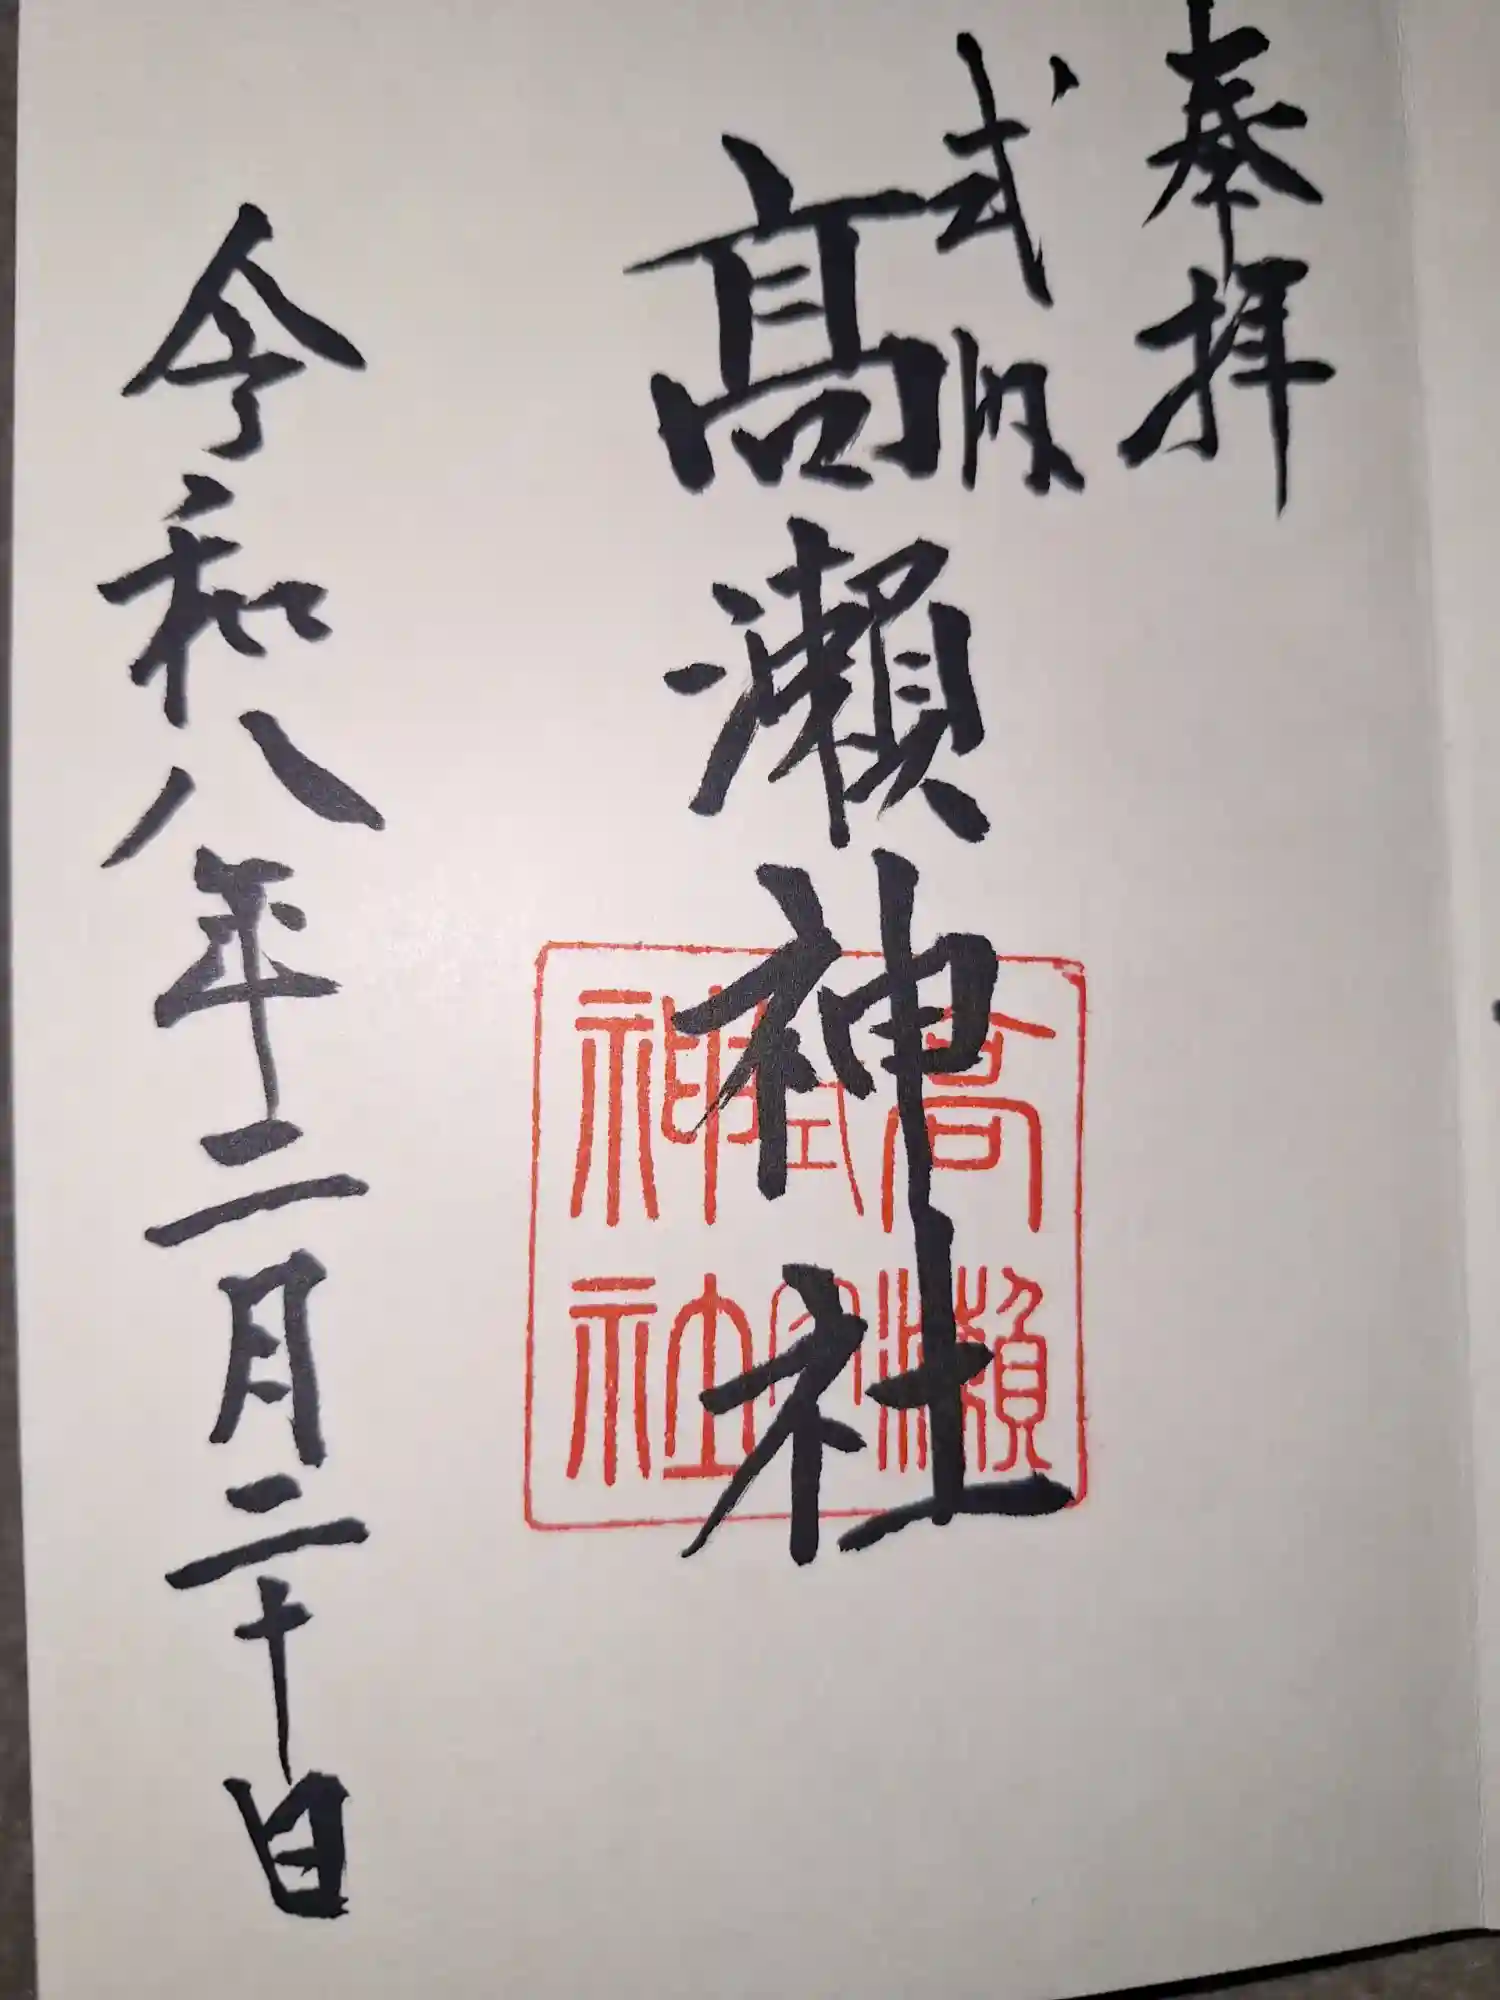 奉拝
式内
髙瀬神社
高瀬
式内
神社
令和八年二月二十日